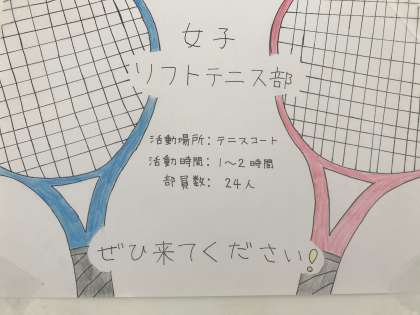 女子
ソフトテニス部
活動場所：テニスコート
活動時間：1〜2時間
部員数：24人
ぜひ来てください!